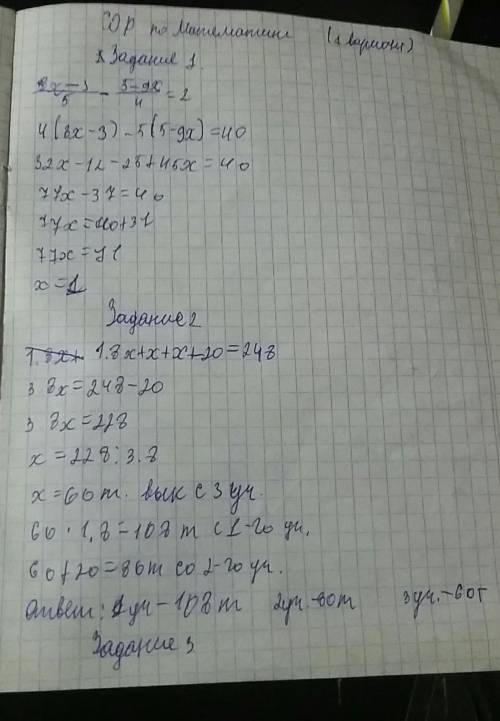 СОР по Математике (1 вариант)
Задание 1.
8x-3/5 - 5-9x/4 = 2
4(8x-3)-5(5-9x)=40
32x-12-25+45x=40
77x-37=40
77x=40+37
77x=77
x=1
Задание 2
1.8x+ 1.8x+x+x+20=248
3 8x=248-20
3 8x=228
x=228:3.8
x=60т. вык с 3 уч.
60·1,8=108т с 1-го уч.
60+20=80т со 2-го уч.
Ответ: 1уч-108т 2уч-80т 3уч.-60т
Задание 3